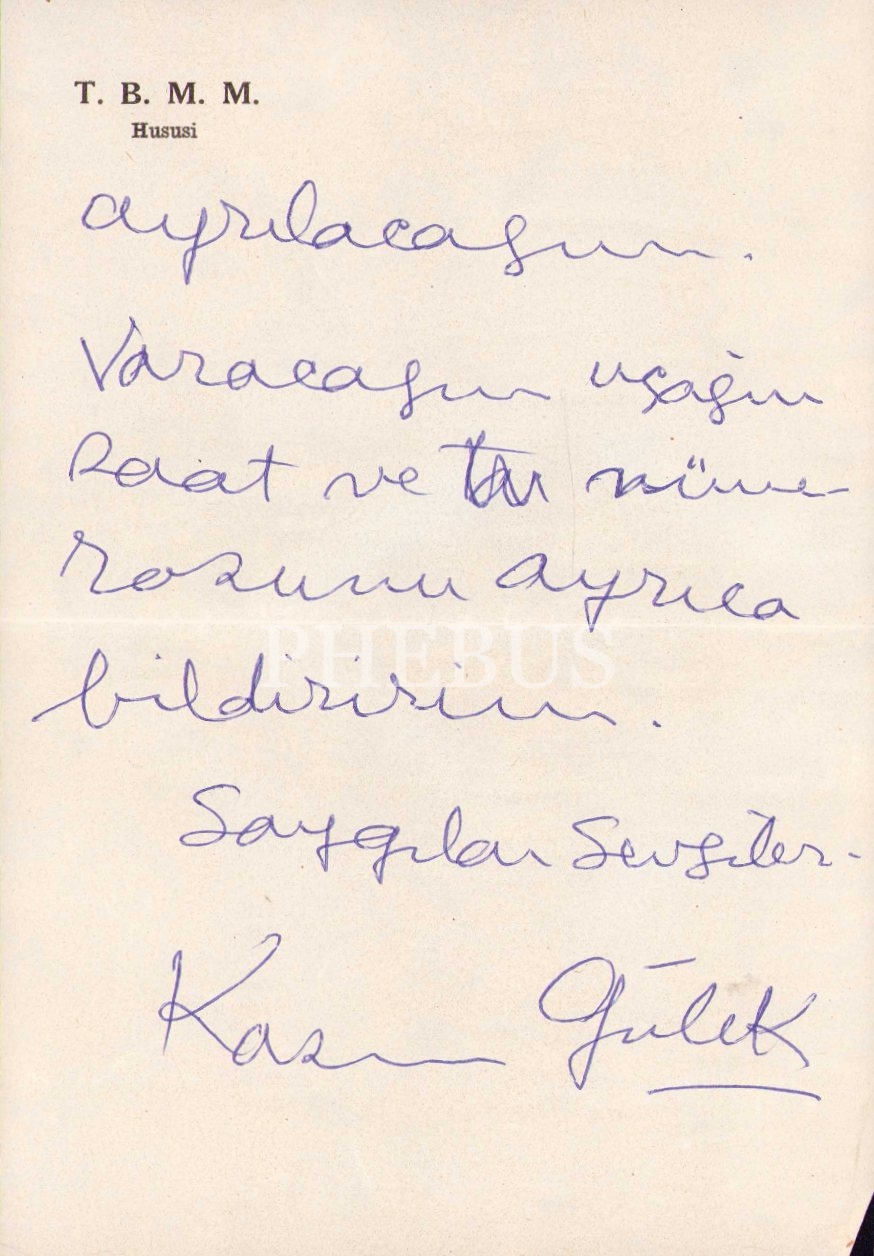 T. B. M. M.
Hususi
ayrılacağım.
Varacağım uçağın
saat ve nüme-
rosunu ayrıca
bildiririm.
PHEBUS
Saygılar Sevgiler.
Kasım Gülek